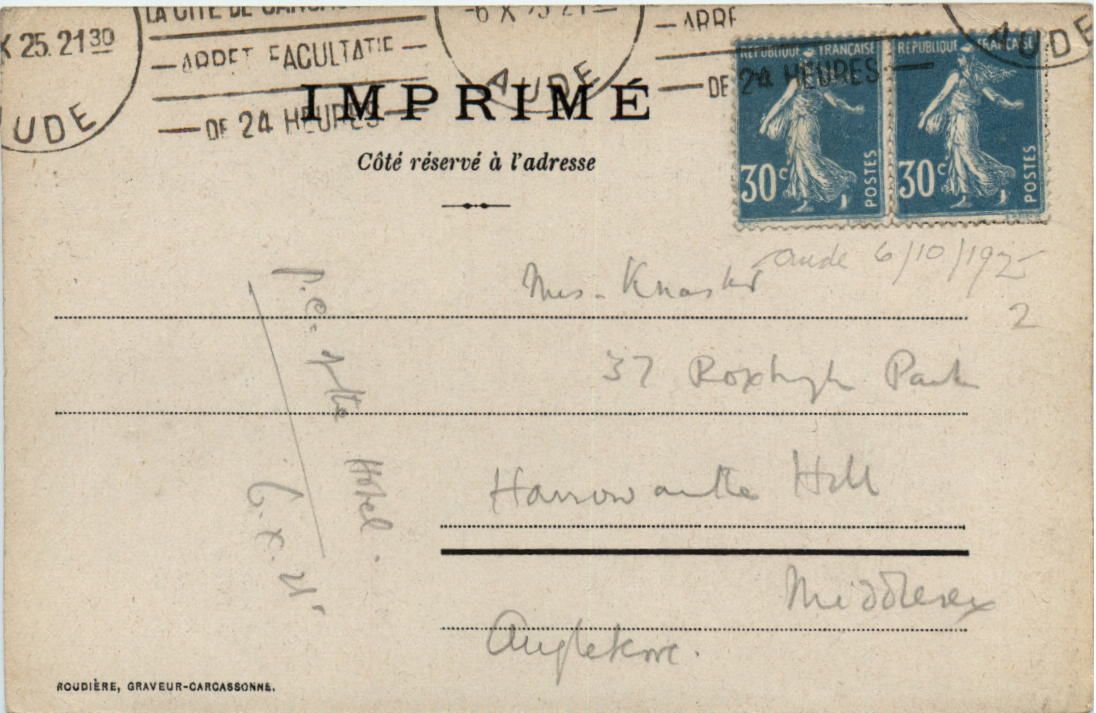 LA CITE DE CARCAS
X 25. 21 30
-6 X 25 21
ARRET FACULTATIF
ARRE
DE 24 HEURES
DE 24 HEURES
UDE
AUDE
AUDE
IMPRIMÉ
Côté réservé à l'adresse
REPUBLIQUE FRANÇAISE
30c POSTES
REPUBLIQUE FRANÇAISE
30c POSTES
aude 6/10/1925
2
Mrs. Knaster
37 Roxburgh Park
Harrow on the Hill
Middlesex
Angleterre.
P.C. of the Hotel.
6.X.25
ROUDIÈRE, GRAVEUR-CARCASSONNE.